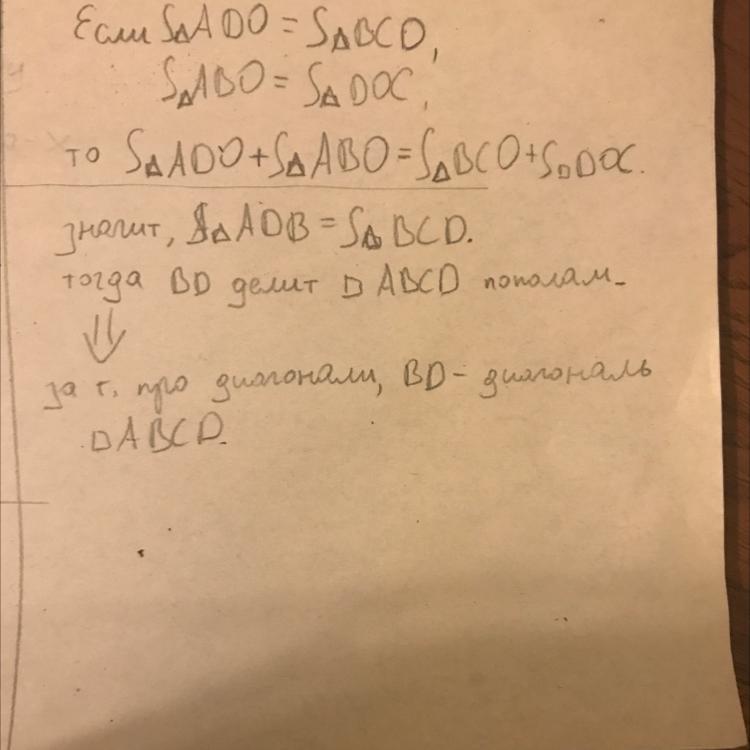 Если S△ADO = S△BCO,
S△ABO = S△DOC,
то S△ADO + S△ABO = S△BCO + S□DOC.
значит, S△ADB = S△BCD.
тогда BD делит □ ABCD пополам.
⇓
за т. про диагонали, BD - диагональ
□ABCD.